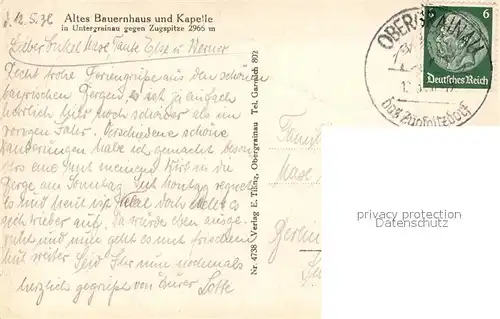 Altes Bauernhaus und Kapelle
in Untergrainau gegen Zugspitze 2965 m
d. 12.5.36
Lieber Onkel Max, Tante Else u. Werner
Recht frohe Feriengrüße aus den schönen
bayrischen Bergen, es ist ja einfach
herrlich hier noch schöner als im
vorigen Jahr. Verschiedene schöne
Wanderungen habe ich gemacht beson
eine mit meinem Wirt in die
Berge am Sonntag. Seit Montag regnet
es und heut ist doch es
sich wieder auf. So würde eben ausge
ruht und nun geht es mit frischem
Mut weiter. Seid Ihr nun nochmals
herzlich gegrüßt von Eurer Lotte
Nr. 4738 Verlag E. Tilinz, Obergrainau Tel. Garmisch 802
OBERGRAINAU
Das Zugspitzdorf
6
Deutsches Reich
Max
Berlin
privacy protection
Datenschutz